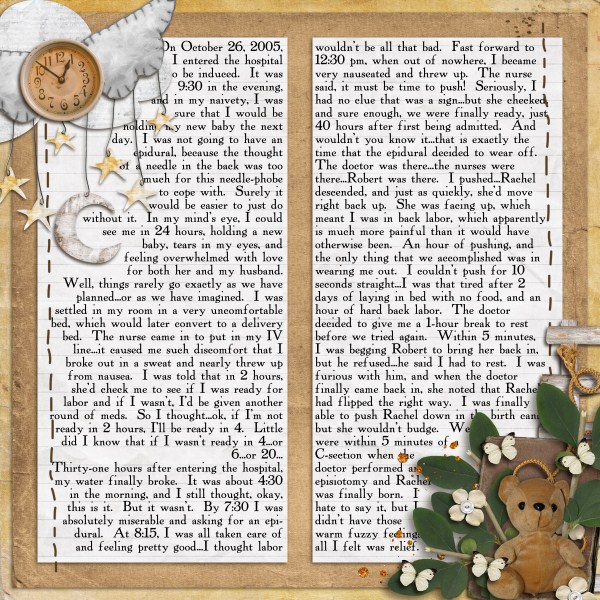 On October 26, 2005,
I entered the hospital
to be induced. It was
9:30 in the evening,
and in my naivety, I was
sure that I would be
holding my new baby the next
day. I was not going to have an
epidural, because the thought
of a needle in the back was too
much for this needle-phobe
to cope with. Surely it
would be easier to just do
without it. In my mind's eye, I could
see me in 24 hours, holding a new
baby, tears in my eyes, and
feeling overwhelmed with love
for both her and my husband.
Well, things rarely go exactly as we have
planned...or as we have imagined. I was
settled in my room in a very uncomfortable
bed, which would later convert to a delivery
bed. The nurse came in to put in my IV
line...it caused me such discomfort that I
broke out in a sweat and nearly threw up
from nausea. I was told that in 2 hours,
she'd check me to see if I was ready for
labor and if I wasn't, I'd be given another
round of meds. So I thought...ok, if I'm not
ready in 2 hours, I'll be ready in 4. Little
did I know that if I wasn't ready in 4...or
6...or 20...
Thirty-one hours after entering the hospital,
my water finally broke. It was about 4:30
in the morning, and I still thought, okay,
this is it. But it wasn't. By 7:30 I was
absolutely miserable and asking for an epi-
dural. At 8:15, I was all taken care of
and feeling pretty good...I thought labor
wouldn't be all that bad. Fast forward to
12:30 pm, when out of nowhere, I became
very nauseated and threw up. The nurse
said, it must be time to push! Seriously, I
had no clue that was a sign...but she checked
and sure enough, we were finally ready, just
40 hours after first being admitted. And
wouldn't you know it...that is exactly the
time that the epidural decided to wear off.
The doctor was there...the nurses were
there...Robert was there. I pushed...Rachel
descended, and just as quickly, she'd move
right back up. She was facing up, which
meant I was in back labor, which apparently
is much more painful than it would have
otherwise been. An hour of pushing, and
the only thing that we accomplished was in
wearing me out. I couldn't push for 10
seconds straight...I was that tired after 2
days of laying in bed with no food, and an
hour of hard back labor. The doctor
decided to give me a 1-hour break to rest
before we tried again. Within 5 minutes,
I was begging Robert to bring her back in,
but he refused...he said I had to rest. I was
furious with him, and when the doctor
finally came back in, she noted that Rachel
had flipped the right way. I was finally
able to push Rachel down in the birth canal
but she wouldn't budge. We
were within 5 minutes of a
C-section when the
doctor performed an
episiotomy and Rachel
was finally born. It
hate to say it, but I
didn't have those
warm fuzzy feelings
all I felt was relief.